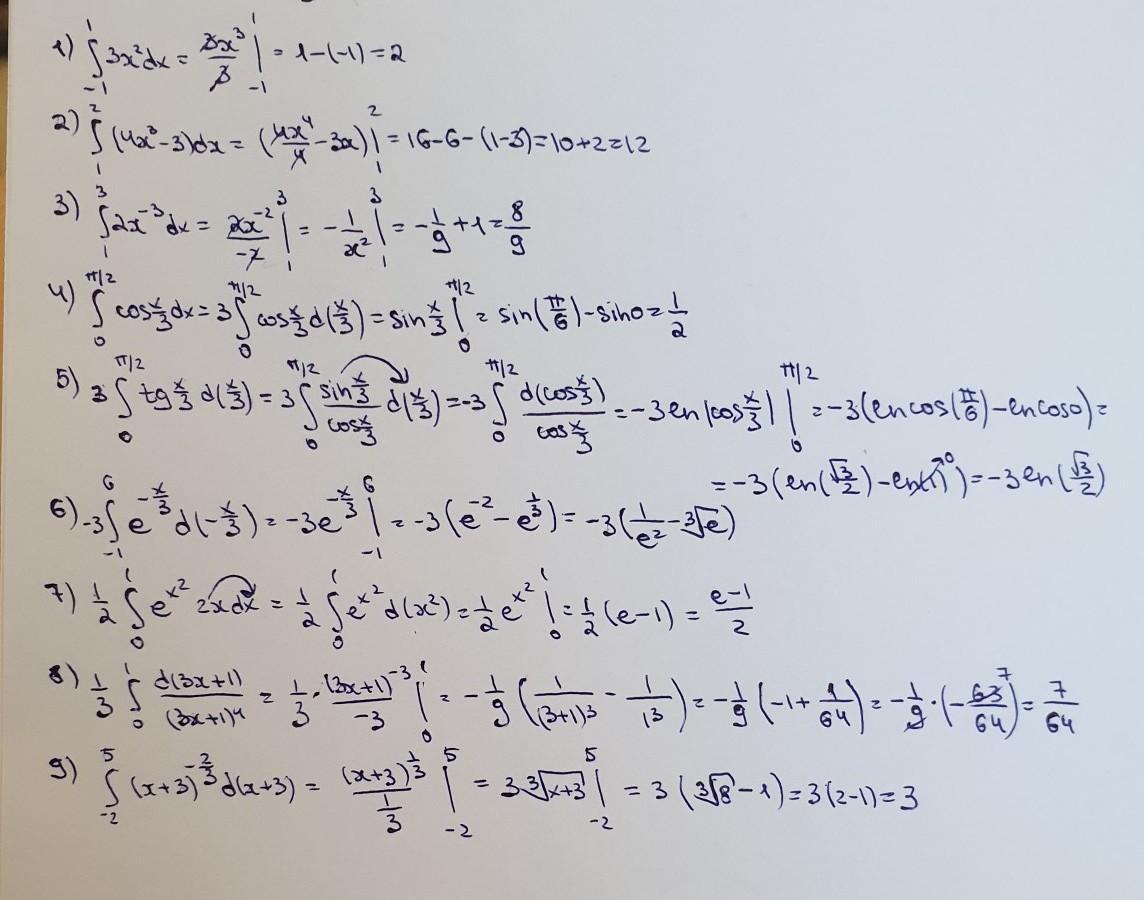 1) ∫₋₁¹ 3x²dx = 3x³/3 |₋₁¹ = 1-(-1) = 2
2) ∫₁² (4x³-3)dx = (4x⁴/4 - 3x)|₁² = 16-6-(1-3) = 10+2 = 12
3) ∫₁³ 2x⁻³dx = 2x⁻²/-2 |₁³ = -1/x² |₁³ = -1/9 + 1 = 8/9
4) ∫₀^(π/2) cos x/3 dx = 3∫₀^(π/2) cos x/3 d(x/3) = sin x/3 |₀^(π/2) = sin(π/6) - sin0 = 1/2
5) 3∫₀^(π/2) tg x/3 d(x/3) = 3∫₀^(π/2) sin x/3 / cos x/3 d(x/3) = -3∫₀^(π/2) d(cos x/3) / cos x/3 = -3 ln|cos x/3| |₀^(π/2) = -3(ln cos(π/6) - ln cos0) =
= -3(ln(√3/2) - ln(1)→0) = -3 ln(√3/2)
6) -3∫₋₁⁶ e^(-x/3) d(-x/3) = -3e^(-x/3) |₋₁⁶ = -3(e⁻² - e^(1/3)) = -3(1/e² - ³√e)
7) 1/2 ∫₀¹ e^(x²) 2x dx = 1/2 ∫₀¹ e^(x²) d(x²) = 1/2 e^(x²) |₀¹ = 1/2 (e-1) = (e-1)/2
8) 1/3 ∫₀¹ d(3x+1)/(3x+1)⁴ = 1/3 · (3x+1)⁻³/-3 |₀¹ = -1/9 (1/(3+1)³ - 1/1³) = -1/9 (-1 + 1/64) = -1/9 · (-63/64) 7 = 7/64
9) ∫₋₂⁵ (x+3)^(-2/3) d(x+3) = (x+3)^(1/3) / (1/3) |₋₂⁵ = 3 ³√(x+3) |₋₂⁵ = 3(³√8 - 1) = 3(2-1) = 3